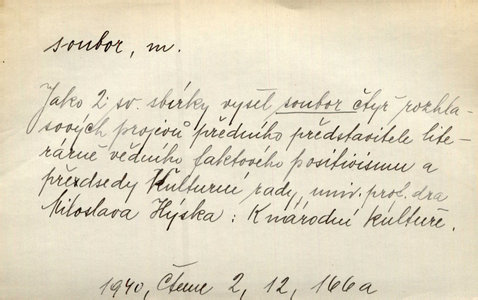 soubor, m.
Jako 2. sv. sbírky vyšel soubor čtyř rozhla-
sových projevů předního představitele lite-
rárně vědního faktového positivismu a
předsedy Kulturní rady, univ. prof. dra
Miloslava Hýska: K národní kultuře.
1940, Čteme 2, 12, 166a